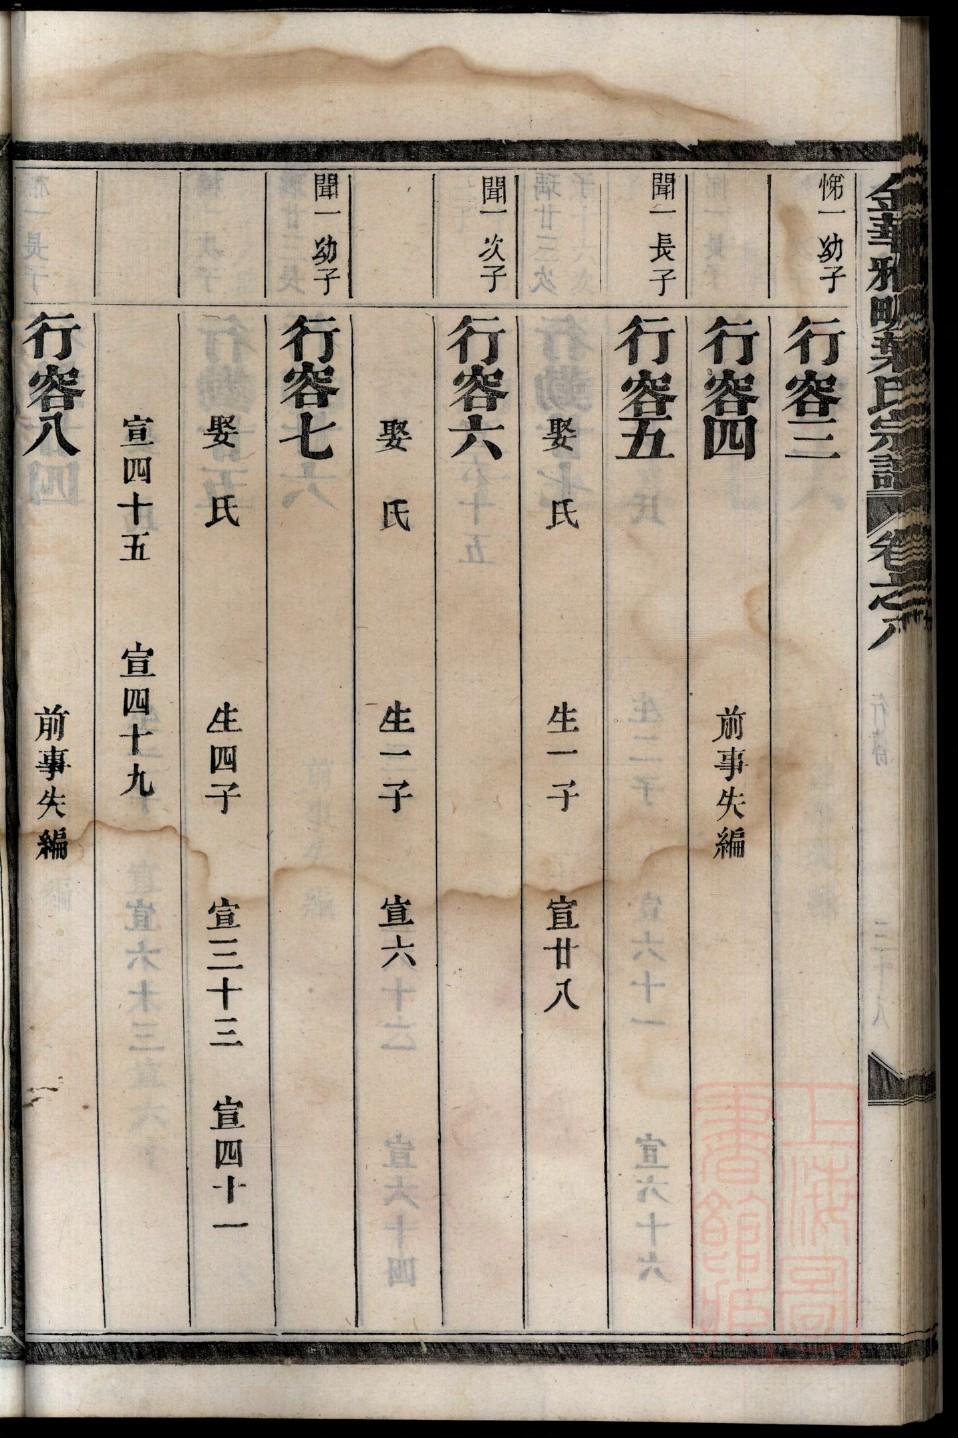 金華雅畈葉氏宗譜 卷之八
悌一幼子
行容三
行容四
前事失編
聞一長子
行容五
娶 氏 生一子 宣廿八
聞一次子
行容六
娶 氏 生一子 宣六
聞一幼子
行容七
娶 氏 生四子 宣三十三 宣四十一
宣四十五 宣四十九
行容八
前事失編